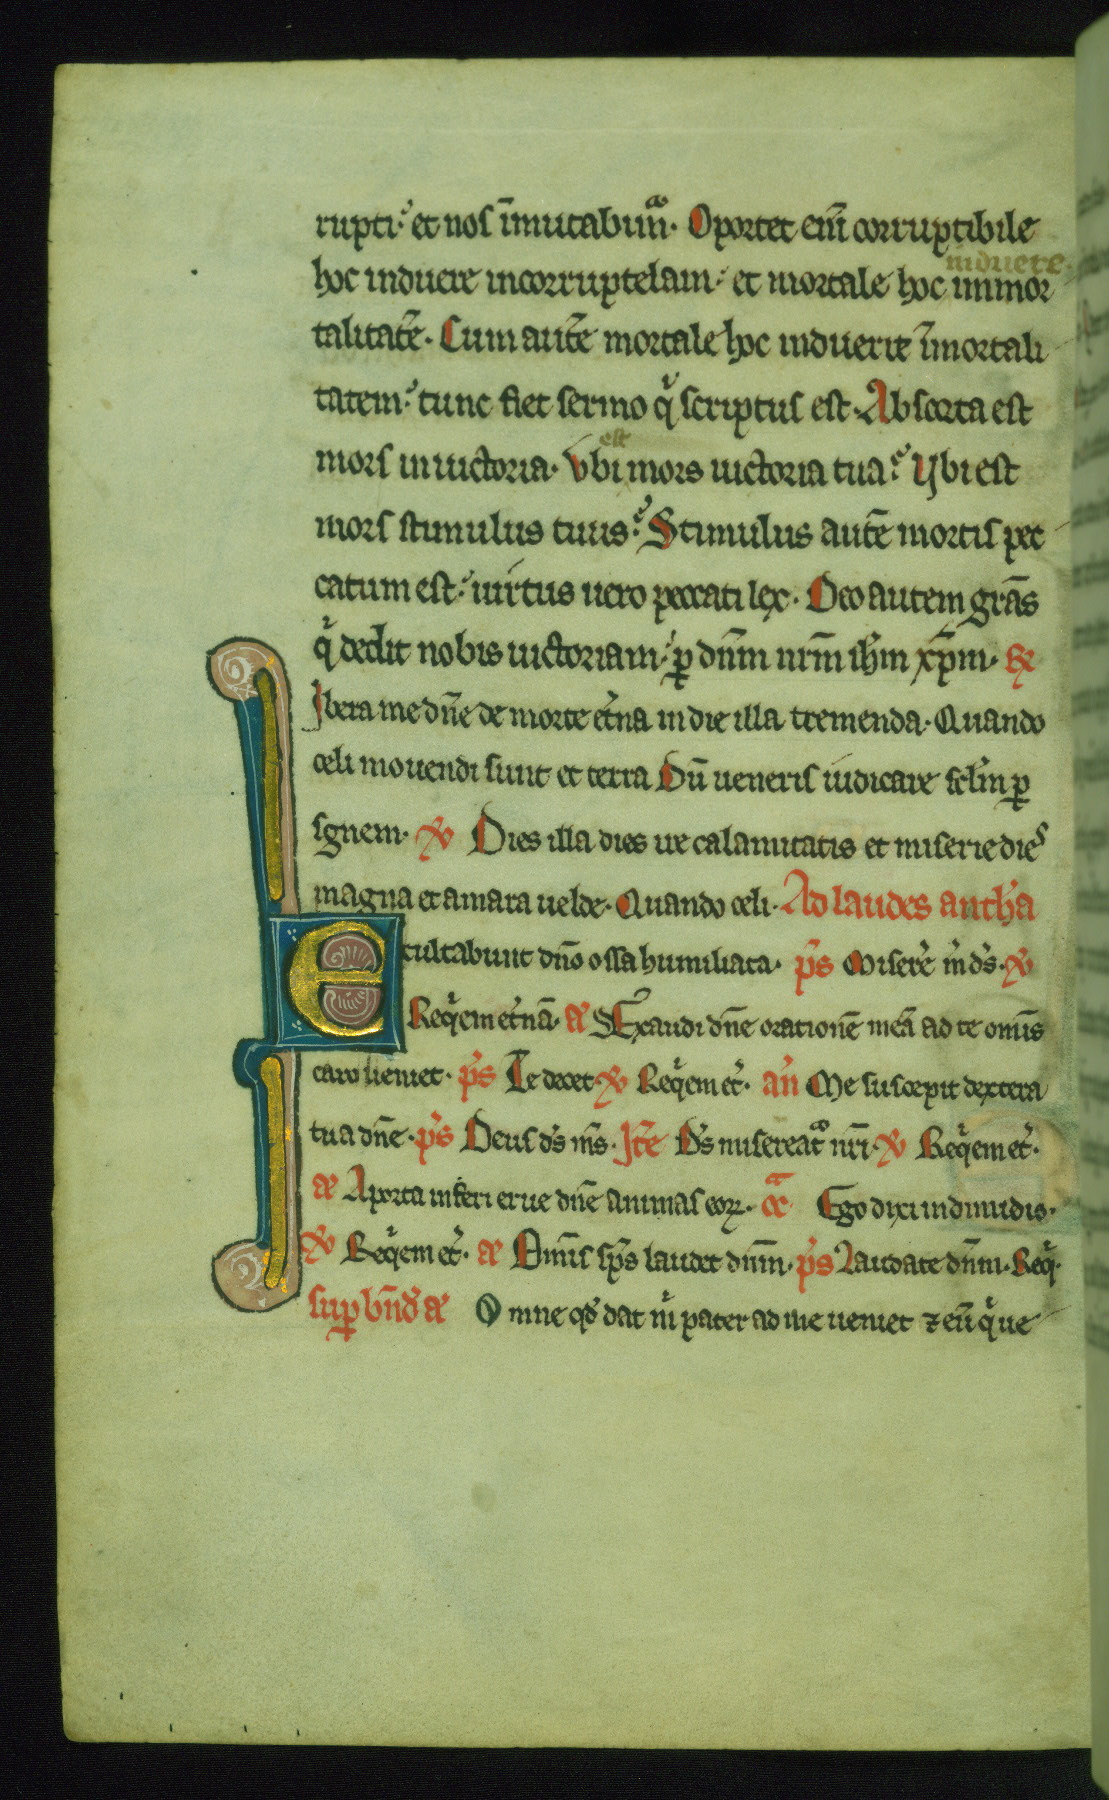 rupti. et nos īmutabimᷣ. Oportet eni͂ corruptibile
induere
hoc induere incorruptelam. et mortale hoc inmor
talitatē. Cum autē mortale hoc induerit īmortali
tatem. tunc fiet sermo qͥ scriptus est. Absorta est
est
mors in uictoria. Vbi mors uictoria tua. Vbi est
mors stimulus tuus. Stimulus autē mortis pec
catum est. uirtus uero peccati lex. Deo autem grās
qͥ dedit nobis uictoriam. ꝑ dn̄m nr̄m ihm̄ xp̄m. ℞
libera me dn̄e de morte et̄na in die illa tremenda. Quando
celi mouendi sunt et terra Dū ueneris iudicare sc̄lm ꝑ
ignem. ℣ Dies illa dies ire calamitatis et miserie dies
magna et amara ualde. Quando celi. Ad laudes anth̄a
Exultabunt dn̄o ossa humiliata. p̄s Miserē m̄ ds̄. ℣
Reqͥem et̄nā. a͞ Exaudi dn̄e orationē meā ad te omīs
caro ueniet. p̄s Te decet. ℣ Reqͥem et̄. an̄ Me suscepit dextera
tua dn̄e. p̄s Deus ds̄ ms̄. Itē Ds̄ misereatᷣ nr̄i. ℣ Reqͥem et̄.
a͞ A porta inferi erue dn̄e animas eoꝝ. Ego dixi in dimidio.
℣ Reqͥem et̄. a͞ Omīs sp̄s laudet dn̄m. p̄s Laudate dn̄m. Reqͥ.
suꝑ bn̄d a͞ Omne qd̄ dat m̄ pater ad me ueniet ⁊ eū qͥ ue